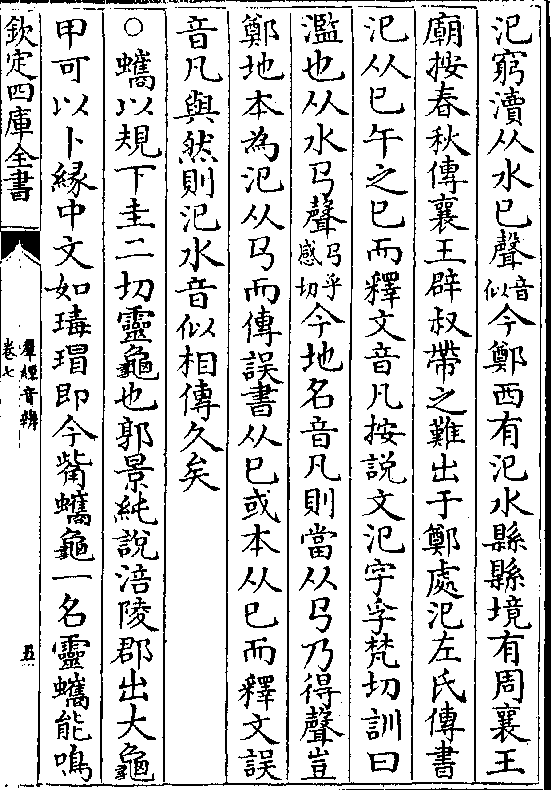 汜窮瀆从水巳聲音似今鄭西有汜水縣縣境有周襄王
廟按春秋傳襄王辟叔帶之難出于鄭處汜左氏傳書
汜从巳午之巳而釋文音凡按說文氾字孚梵切訓曰
濫也从水㔾聲㔾乎感切今地名音凡則當从㔾乃得聲豈
鄭地本為氾从㔾而傳誤書从巳或本从巳而釋文誤
音凡與然則汜水音似相傳久矣
○蠵以規下圭二切靈龜也郭景純說涪陵郡出大龜
甲可以卜緣中文如瑇瑁即今觜蠵龜一名靈蠵能鳴
欽定四庫全書
羣經音辨
卷七
五